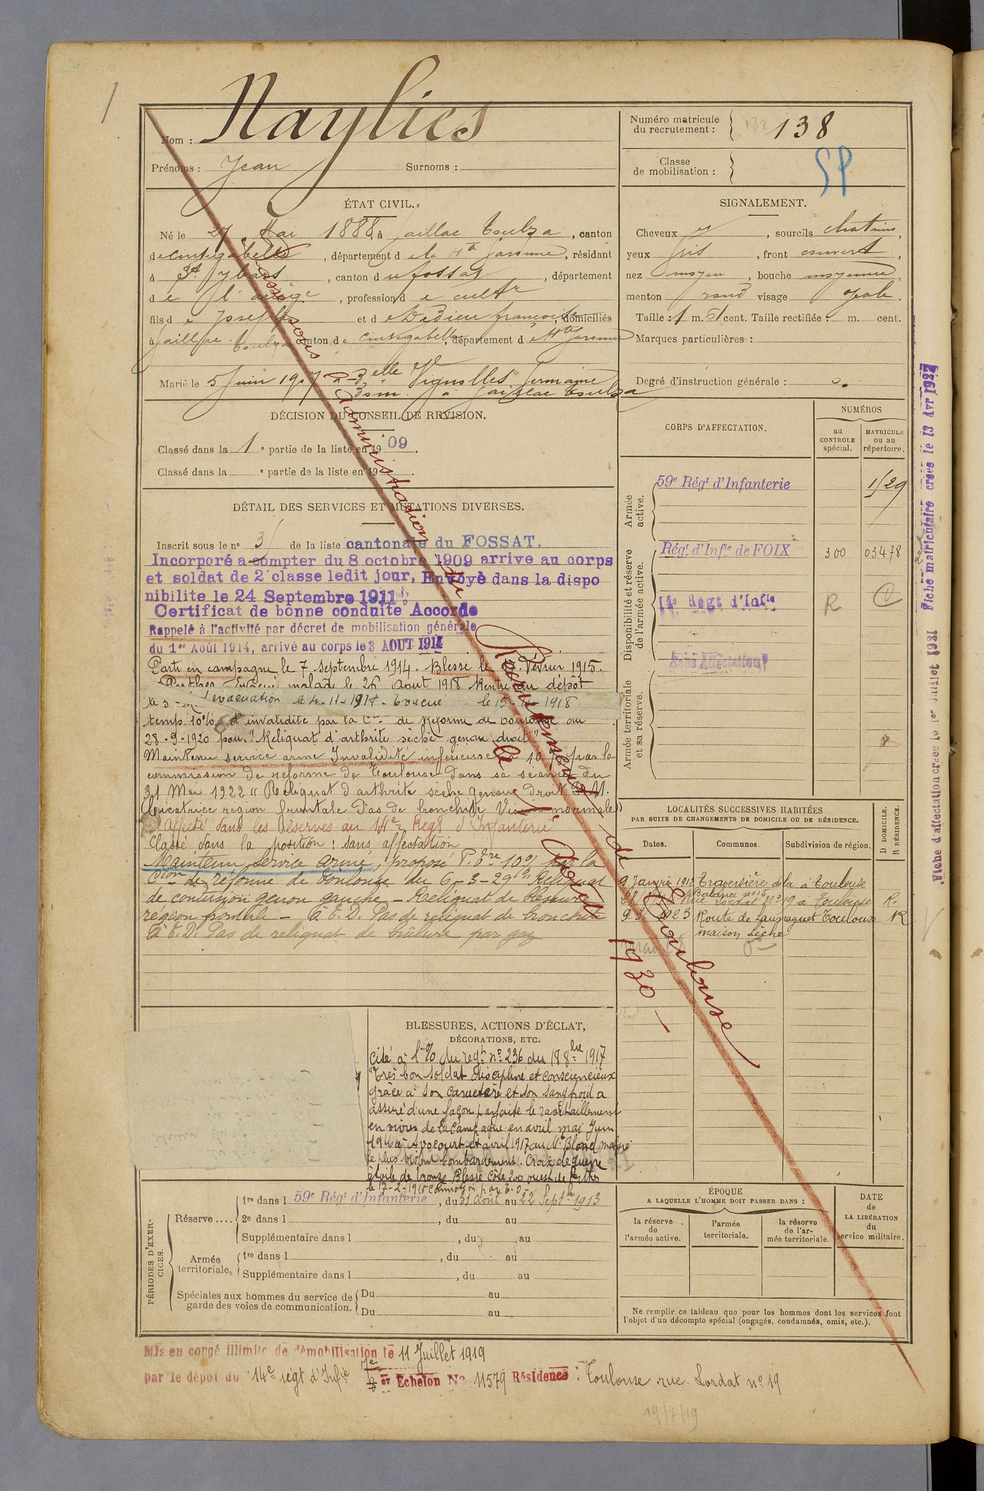 Nom : Naylies
Prénoms : Jean Surnoms :
Numéro matricule du recrutement : 138
Classe de mobilisation :
SP
ÉTAT CIVIL.
Né le 27 Mai 1888, à Gaillac Toulza, canton
de Cintegabelle, département de la Hte Garonne, résidant
à St Ybars, canton du Fossat, département
de l'Ariège, profession de cultr
fils de Joseph et de Dedieu françoise, domiciliés
à Gaillac Toulza canton de Cintegabelle, département de Hte Garonne
Marié le 5 Juin 1917 à Delle Vignolles Germaine
Dsm. à Gaillac Toulza
SIGNALEMENT.
Cheveux et, sourcils chatains,
yeux gris, front couvert,
nez moyen, bouche moyenne,
menton rond visage ovale.
Taille : 1 m. cent. Taille rectifiée : m. cent.
Marques particulières :
Degré d'instruction générale : 3.
DÉCISION DU CONSEIL DE RÉVISION.
Classé dans la 1e partie de la liste en 1909.
Classé dans la e partie de la liste en 19
CORPS D'AFFECTATION.
NUMÉROS
AU CONTRÔLE spécial.
MATRICULE ou au répertoire.
Armée active.
59e Régt d'Infanterie
Disponibilité et réserve de l'armée active.
Régt d'Infie de FOIX 300 03478
14e Régt d'Infie R
Sans Affectation
Armée territoriale et sa réserve.
DÉTAIL DES SERVICES ET MUTATIONS DIVERSES.
Inscrit sous le n° 3 de la liste cantonale du FOSSAT.
Incorporé à compter du 8 octobre 1909 arrivé au corps
et soldat de 2e classe ledit jour. Envoyé dans la dispo
nibilité le 24 Septembre 1911
Certificat de bonne conduite Accordé
Rappelé à l'activité par décret de mobilisation générale
du 1er Août 1914, arrivé au corps le 3 AOUT 1914
Parti en campagne le 7 septembre 1914. Blessé le Février 1915.
malade le 26 Aout 1918 Rentré au dépôt
évacuation le 4-11-1918
temp. 10% d'invalidité par la Con de Réforme de Toulouse du
28-9-1920 pour "Reliquat d'arthrite sèche genou droit"
Maintenu service armé Invalidité inférieure à 10% par la
commission de réforme de Toulouse dans sa séance du
31 Mai 1922 "Reliquat d'arthrite sèche genou droit
Cicatrice région frontale Pas de bronchite Vision normale"
Affecté dans les réserves au 14e Régt d'Infanterie
Classé dans la position : sans affectation
Maintenu service armé, proposé P. 10% par la
Con de réforme de Toulouse du 6-3-29 Reliquat
de contusion genou gauche - Reliquat de blessure
région frontale - Pas de reliquat de bronchite
Pas de reliquat de brûlure par gaz
Passé sous l'administration du Recrutement de Toulouse
1930
LOCALITÉS SUCCESSIVES HABITÉES
PAR SUITE DE CHANGEMENTS DE DOMICILE OU DE RÉSIDENCE.
Dates. Communes. Subdivision de région. D DOMICILE. R RÉSIDENCE.
9 Janvier 1912 Traversière de la Toulouse
rue Lordat n° 19 à Toulouse R.
1923 Route de Launaguet Toulouse R
maison Sèche
BLESSURES, ACTIONS D'ÉCLAT,
DÉCORATIONS, ETC.
Cité à l'O/ du régt n° 236 du 18 1917
Très bon soldat discipliné et consciencieux
grâce à son caractère et son sang froid a
assuré d'une façon parfaite le ravitaillement
en vivres de la Campagne en avril mai Juin
1916 à Avocourt et avril 1917 au Mt Blond malgré
le plus violent bombardement. Croix de guerre
étoile de bronze Blessé Côte 200 ouest de Perthes
PÉRIODES D'EXERCICES.
Réserve.... 1re dans l 59e Régt d'Infanterie, du 31 Aout au 22 Septbre 1913
2e dans l , du au
Supplémentaire dans l , du au
Armée territoriale, 1re dans l , du au
Supplémentaire dans l , du au
Spéciales aux hommes du service de garde des voies de communication. Du au
Du au
ÉPOQUE
A LAQUELLE L'HOMME DOIT PASSER DANS :
la réserve de l'armée active. l'armée territoriale. la réserve de l'armée territoriale.
DATE DE LA LIBÉRATION du service militaire.
Ne remplir ce tableau que pour les hommes dont les services font
l'objet d'un décompte spécial (engagés, condamnés, omis, etc.).
Mis en congé illimité de démobilisation le 11 Juillet 1919
par le dépôt du 14e régt d'Infie Echelon No 11579 Résidence : Toulouse rue Lordat n° 19
19/7/19
Fiche d'affectation créée le 1er Juillet 1921 Fiche matriculaire créée le 13 Avr 1927